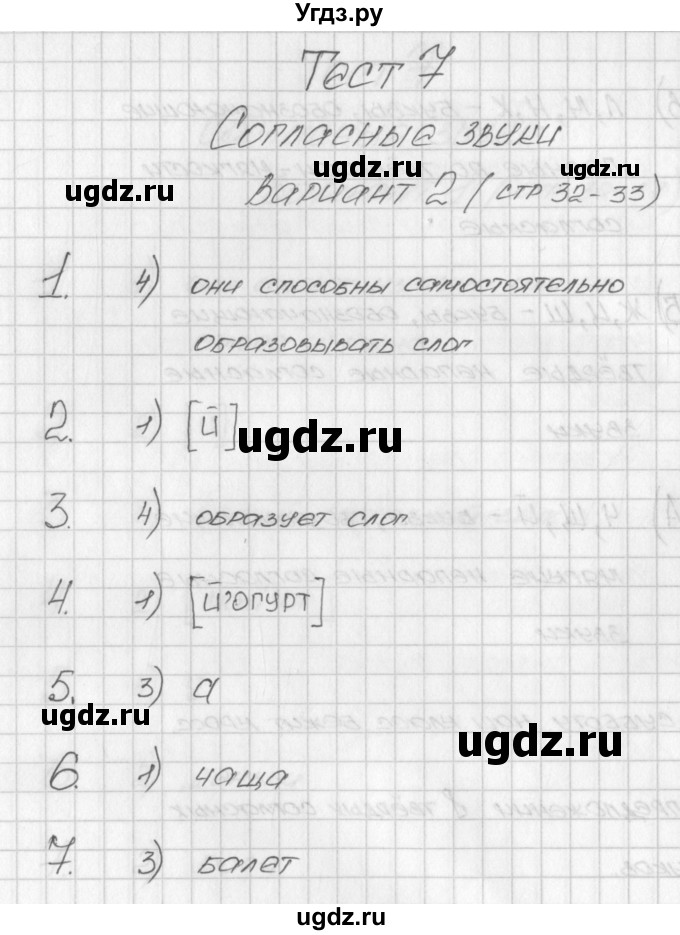 Угдз.ру
Тест 7
Согласные звуки
ugdz.ru
ugdz.ru
ugdz.ru
Вариант 2 (стр 32-33)
1. 4) они способны самостоятельно
образовывать слог
ugdz.ru
2. 1) [й]
ugdz.ru
3. 4) образует слог
4. 1) [й'огурт]
5. 3) а
ugdz.ru
ugdz.ru
6. 1) чаща
7. 3) балет
ugdz.ru